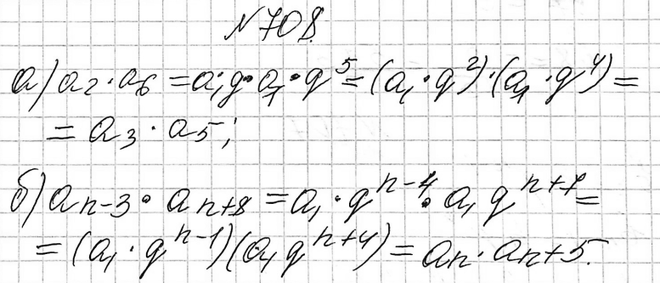 №708.
а) a₂·a₆ = a₁q·a₁·q⁵ = (a₁·q²)·(a₁·q⁴) =
= a₃·a₅;
б) aₙ₋₃·aₙ₊₈ = a₁·qⁿ⁻⁴·a₁qⁿ⁺⁷ =
= (a₁·qⁿ⁻¹)(a₁qⁿ⁺⁴) = aₙ·aₙ₊₅.